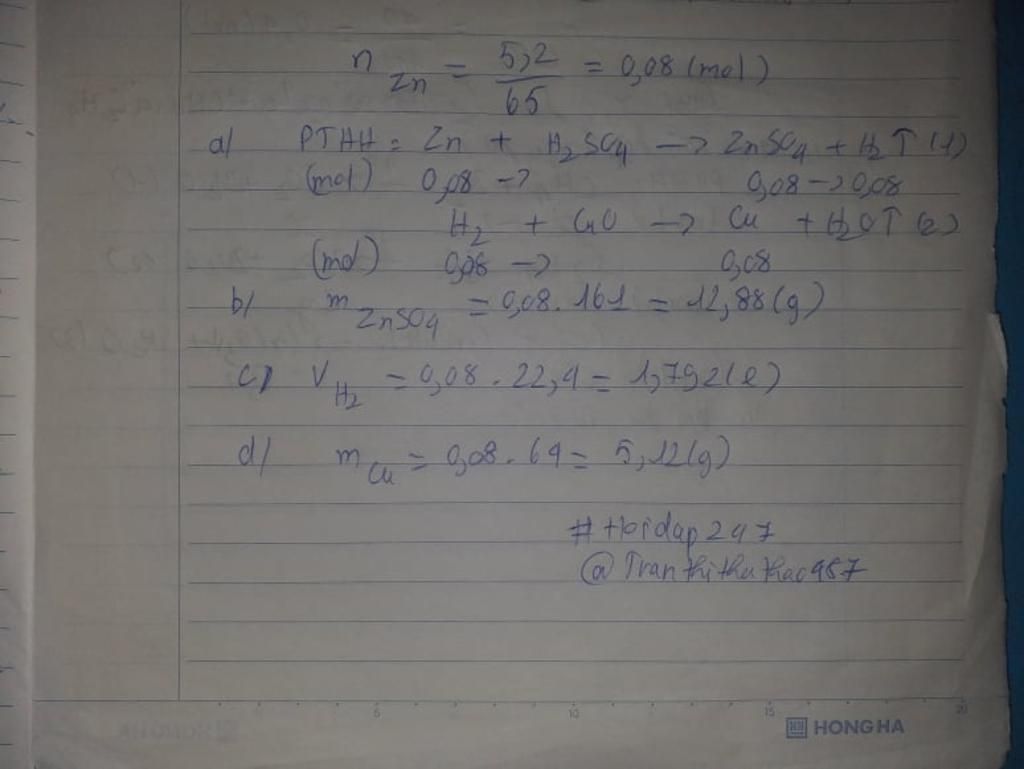 n Zn = 5,2 / 65 = 0,08 (mol)
a/ PTHH: Zn + H2SO4 -> ZnSO4 + H2↑ (1)
(mol) 0,08 -> 0,08 -> 0,08
H2 + CuO -> Cu + H2O↑ (2)
(mol) 0,08 -> 0,08
b/ m ZnSO4 = 0,08 . 161 = 12,88 (g)
c) V H2 = 0,08 . 22,4 = 1,792 (l)
d/ m Cu = 0,08 . 64 = 5,12 (g)
# Hoidap247
@Tranthithuthao987
5 10 15 20
HH HONG HA